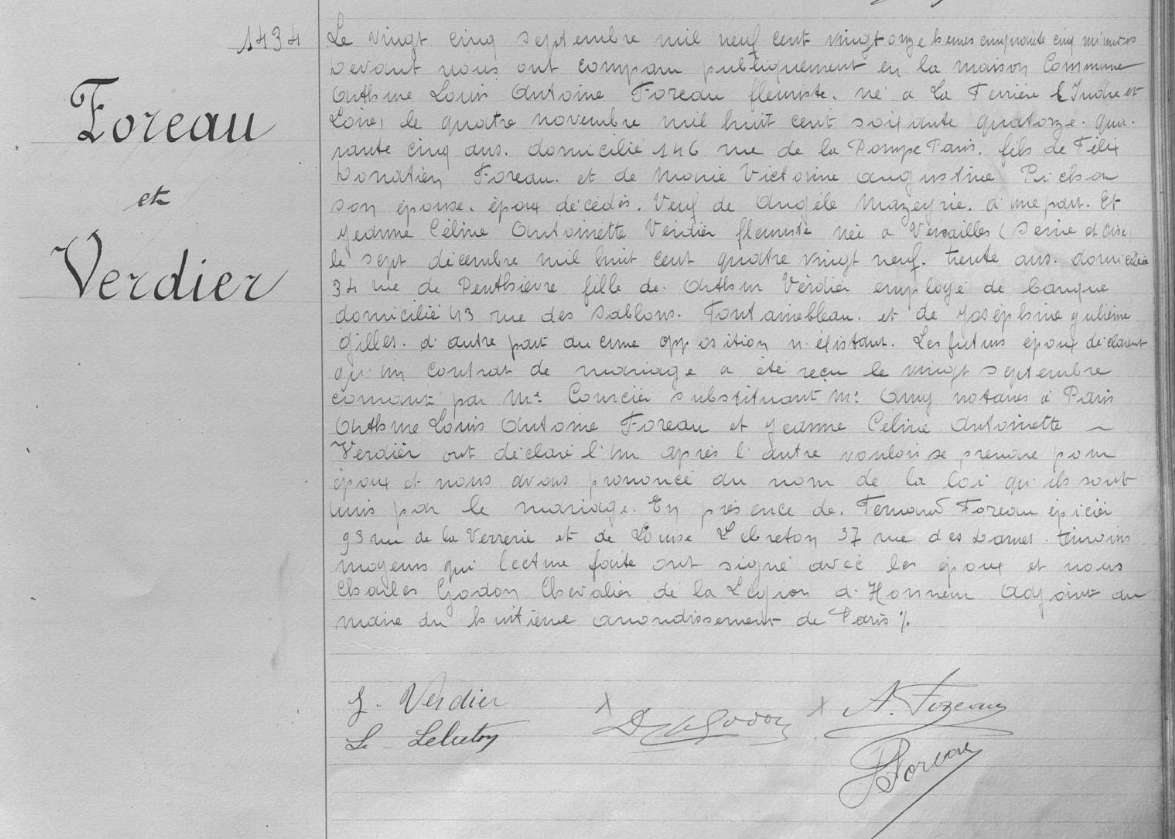 1434
Foreau
et
Verdier
Le vingt cinq septembre mil neuf cent vingt onze heures cinquante cinq minutes
Devant nous ont comparu publiquement en la maison Commune
Anthime Louis Antoine Foreau fleuriste. né à La Ferrière Indre et
Loire, le quatre novembre mil huit cent soixante quatorze. qua-
rante cinq ans. domicilié 146 rue de la Pompe Paris. fils de Félix
Donatien Foreau. et de Marie Victorine Augustine Pichon
son épouse. époux décédés. Veuf de Angèle Mazeyrie. d'une part. Et
Jeanne Céline Antoinette Verdier fleuriste née à Versailles (Seine et Oise,
le sept décembre mil huit cent quatre vingt neuf. trente ans. domiciliée
34 rue de Penthièvre fille de Verdier employé de banque
domicilié 43 rue des Sablons. Fontainebleau. et de Joséphine Julienne
Gilles. d'autre part aucune opposition n'existant. Les futurs époux déclarent
qu'un contrat de mariage a été reçu le vingt septembre
courant par Me Courcier substituant Me notaires à Paris
Anthime Louis Antoine Foreau et Jeanne Céline Antoinette ~
Verdier ont déclaré l'un après l'autre vouloir se prendre pour
époux et nous avons prononcé au nom de la loi qu'ils sont
unis par le mariage. En présence de. Fernand Foreau épicier
93 rue de la Verrerie et de Louise Lebreton 37 rue des Dames. témoins
majeurs qui lecture faite ont signé avec les époux et nous
Charles Godon Chevalier de la Légion d'Honneur Adjoint au
maire du huitième arrondissement de Paris %.
J. Verdier
L. Lebreton
Godon
A. Foreau
Foreau